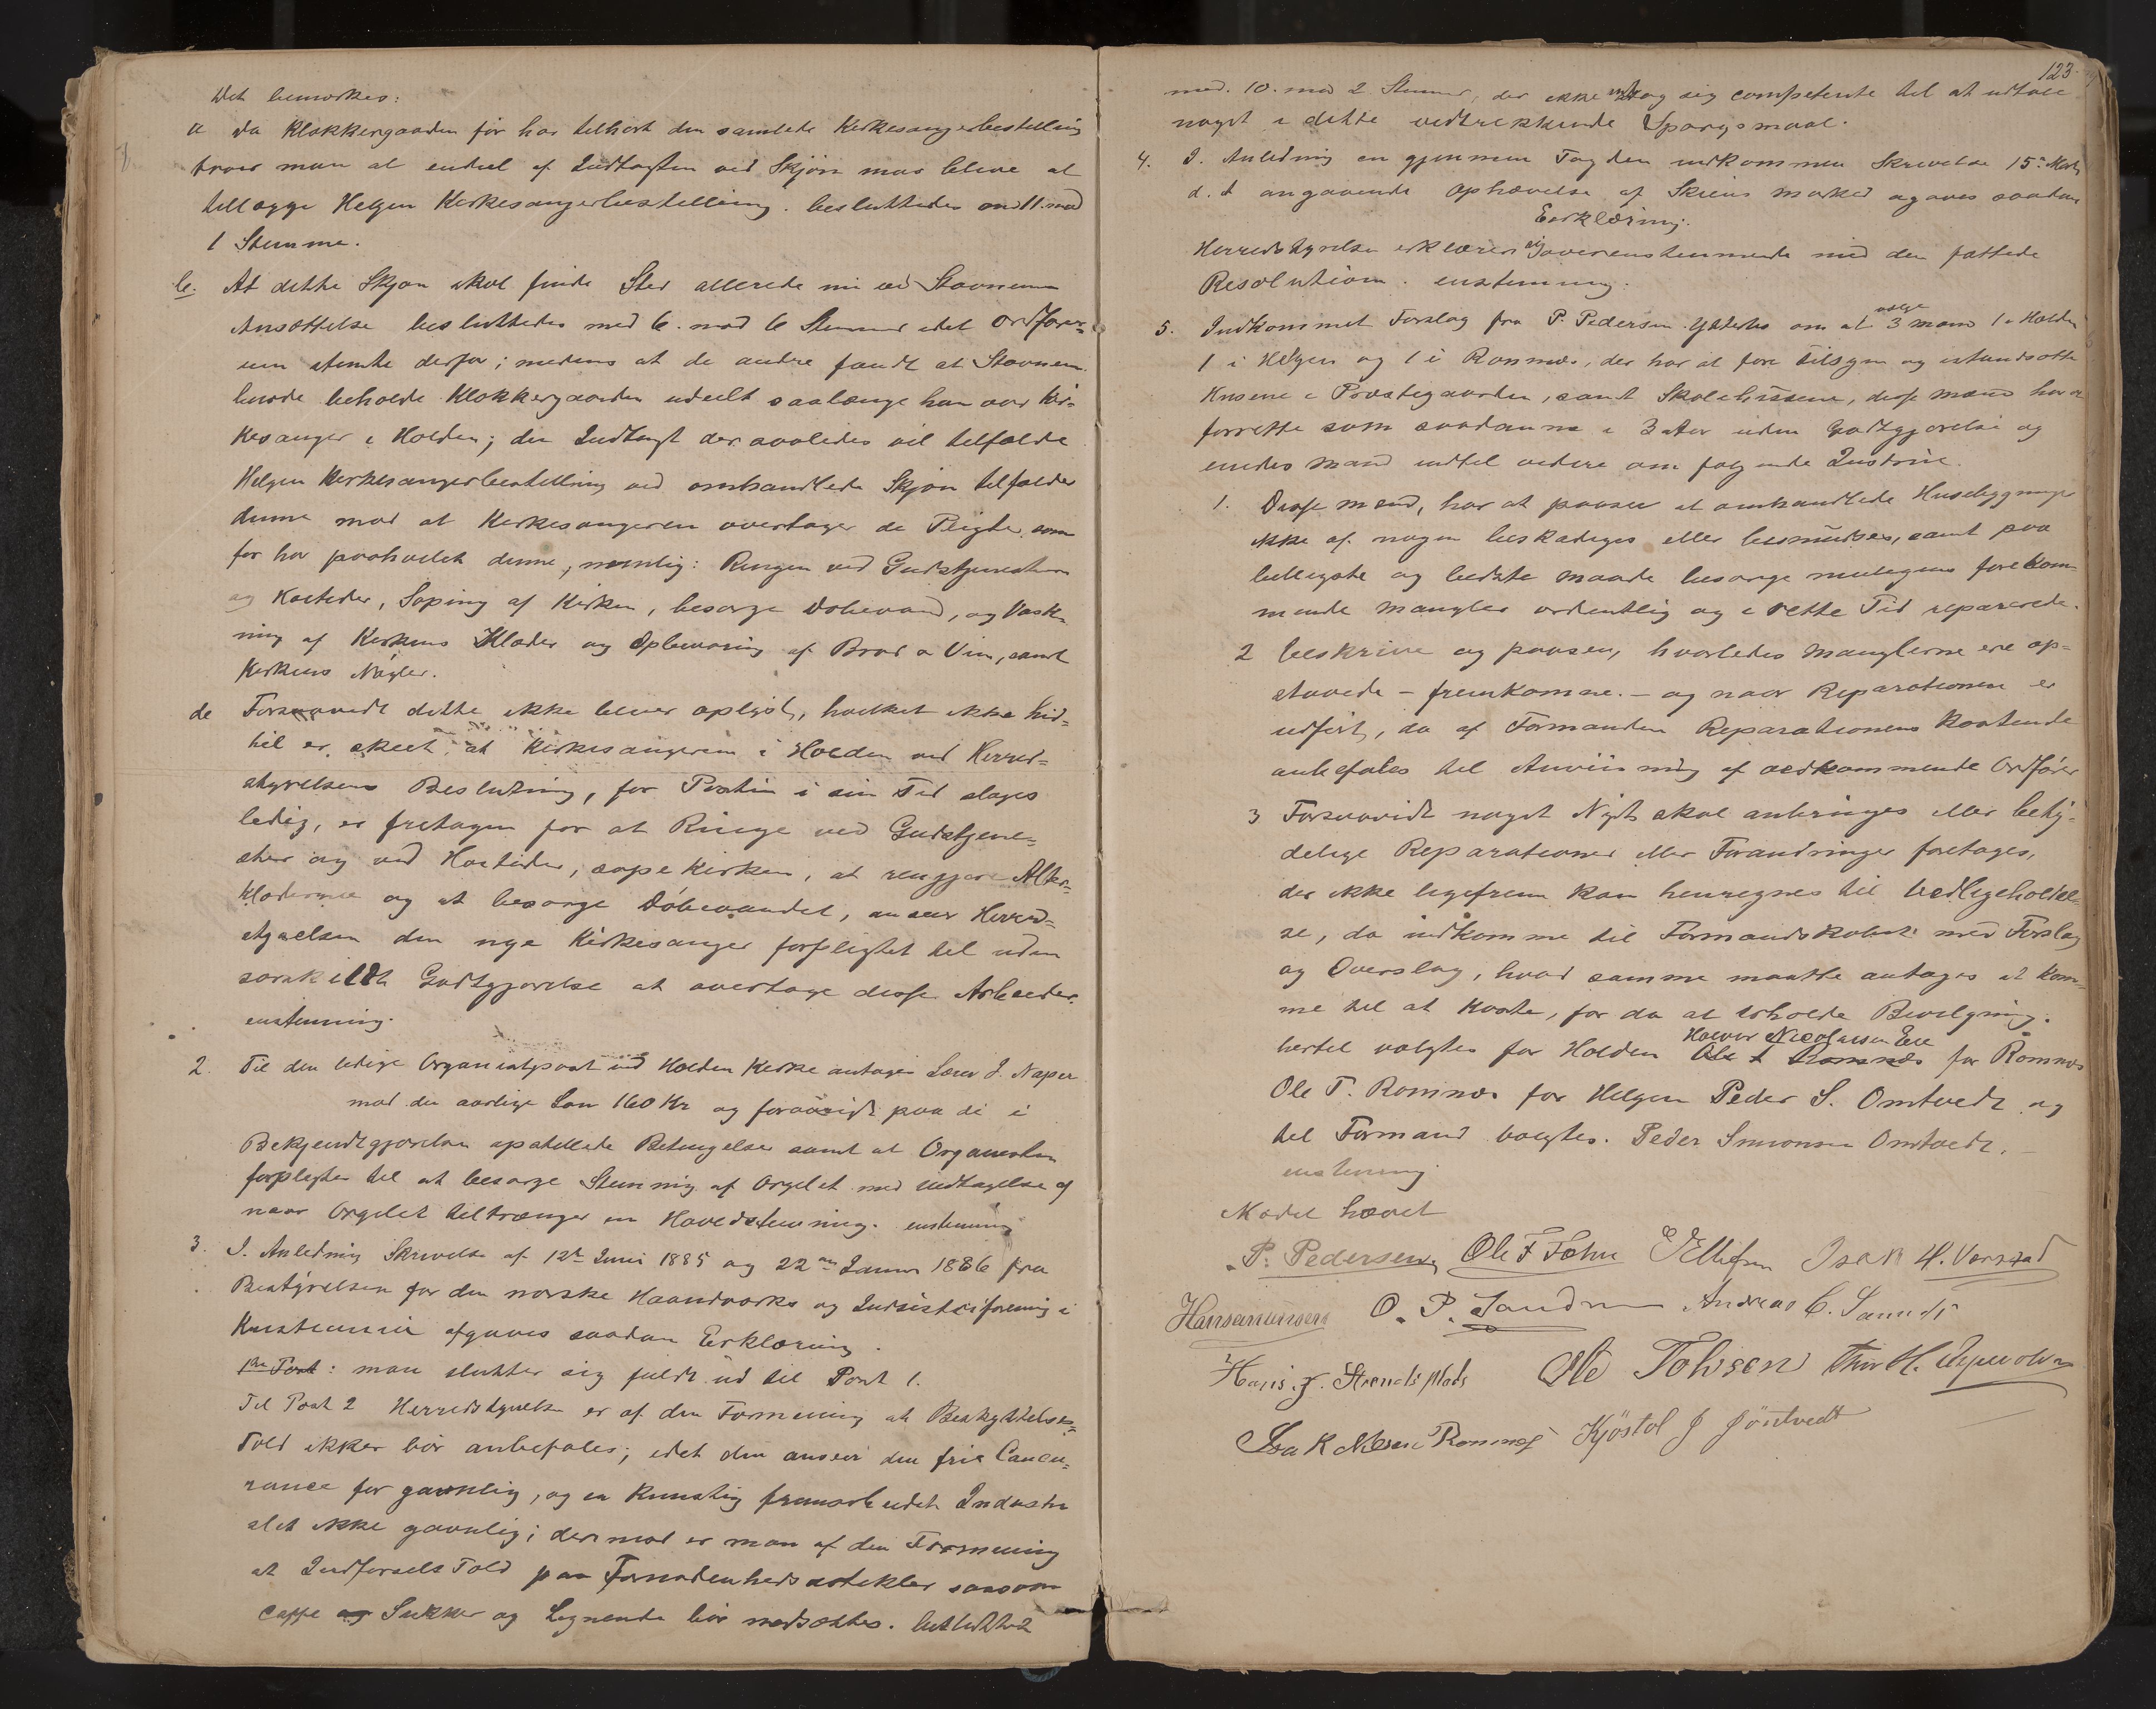 Det bemærkes:
a da Klokkergaarden før har tilhørt den samlede Kirkesangerbestilling
troer man at endeel af Indtægten ved Skjøn maa blive at
tillægge Helgen Kirkesangerbestilling. besluttedes med 11. mod
1 Stemme.
b. At dette Skjøn skal finde Sted allerede nu ved Stavnums
Ansættelse besluttedes med 6. mod 6 Stemmer idet Ordføre-
ren stemte derfor; medens at de andre fandt at Stavnum
burde beholde Klokkergaarden udeelt saalænge han var Kir-
kesanger i Holden; den Indtægt der saaledes vil tilfalde
Helgen Kirkesangerbestilling ved omhandlede Skjøn tilfalder
denne mod at Kirkesangeren overtager de Pligter som
før har paahvilet denne, nemlig: Ringen ved Gudstjenesten
og Høitider, Soping af Kirken, besørge Døbevand, og Vask-
ning af Kirkens Klæder og Opbevaring af Brød o Vin, samt
Kirkens Nøgler.
de Forsaavidt dette ikke bliver oplyst, hvilket ikke hid-
til er skeet, at Kirkesangeren i Holden ved Herred-
styrelsens Beslutning, før Posten i sin Tid sloges
ledig, er fritagen for at Ringe ved Gudstjene-
ster og ved Høitider, sope Kirken, at rengjøre Alter-
klæderne og at besørge Døbevandet, anseer Herred-
styrelsen den nye Kirkesanger forpligtet til uden
særskildt Godtgjørelse at overtage disse Arbeider.
enstemmig.
2. Til den ledige Organistpost ved Holden Kirke antages Lærer J. Naper
mod den aarlige Løn 160 Kr og forøvrigt paa de i
Bekjendtgjørelsen opstillede Betingelser samt at Organisten
forpligter til at besørge Stemning af Orgelet med Undtagelse af
naar Orgelet tiltrænger en Hovedstemning. enstemmig
3. I. Anledning Skrivelse af 12te Juni 1885 og 22en Januar 1886 fra
Bestyrelsen for den norske Haandværks og Industriforening i
Kristiania afgaves saadan Erklæring.
1ste Post: man slutter sig fuldt ud til Post 1.
Til Post 2 Herredstyrelsen er af den Formening at Beskyttelses-
Told ikke bør anbefales; idet den anseer den frie Concu-
rance for gavnlig, og en kunstig fremarbeidet Industri
slet ikke gavnlig; derimod er man af den Formening
at Indførsels Told paa Fornødenhedsartikler saasom
Caffe og Sukker og Lignende bør nedsættes. besluttet
123
med. 10. mod 2 Stemmer, der ikke antog sig competente til at udtale
noget i dette vedtrekkende Spørgsmaal.
4. I. Anledning en gjennem Fogden indkommen Skrivelse 15de Marts
d. A angaaende Ophævelse af Skiens marked afgaves saadan
Erklæring.
Herredstyrelsen erklærer sig overensstemmende med den fattede
Resolution. enstemmig.
5. Indkommet Forslag fra P. Pedersen Ytterbø om at vælge 3 mænd 1 i Holden
1 i Helgen og 1 i Romnæs, der har at føre Tilsyn og istandsætte
Husene i Præstegaarden, samt Skolehusene, disse mænd har at
forrette som saadanne i 3 Aar uden Godtgjørelse og
endes mand indtil videre om følgende Instrux.
1. Disse mænd, har at paasee at omhandlede Husebygninger
ikke af nogen beskadiges eller besmudses, samt paa
billigste og bedste maade besørge muligens forekom-
mende mangler ordentlig og i rette Tid reparerede.
2 beskrive og paasee, hvorledes manglerne ere op-
staaede – fremkomne. – og naar Reparationen er
udført, da af Formanden Reparationens Kostende
anbefales til Anviisning af vedkommende Ordfører
3 Forsaavidt noget Nyt skal anbringes eller bety-
delige Reparationer eller Forandringer foretages,
der ikke ligefrem kan henregnes til Vedligeholdel-
se, da indkomme til Formandskabet med Forslag
og Overslag, hvad samme maatte antages at kom-
me til at koste, for da at erholde Bevilgning.
hertil valgtes for Holden Halvor Nicolaisen Eie for Romnæs
Ole T. Romnæs for Helgen Peder S. Omtvedt og
til Formand valgtes. Peder Simonsen Omtvedt. –
enstemmig.
Mødet hævet
P. Pedersen, Ole F Fæhn E Ellefsen Isak H. Vorstad
Hansamunsen O. P. Sandnes Andreas C. Sannes
Hans J. Strandsplads Ole Tohrsen Thor H.
Isak Nilsen Romnæs Kjöstol J Jöntvedt